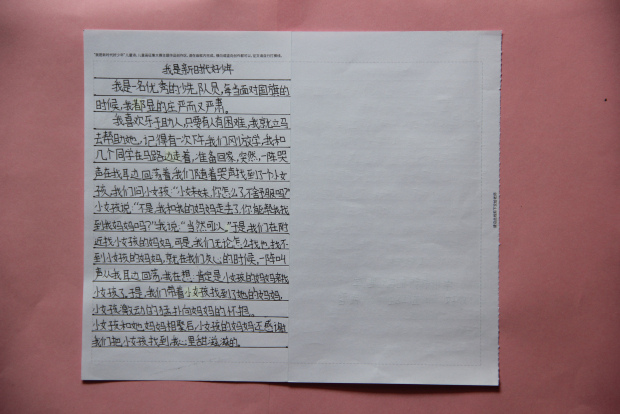 我是新时代好少年
我是一名优秀的少先队员，每当面对国旗的
时候，我都显的庄严而又严肃。
我喜欢乐于助人，只要有人有困难，我就立马
去帮助她，记得有一次下午，我们刚放学，我和
几个同学在马路边走着，准备回家，突然，一阵哭
声在我耳边回荡着，我们随着哭声找到了一个小女
孩，我们问小女孩“小妹妹，你怎么了不舒服吗？”
小女孩说“不是，我和我的妈妈走丢了，你能帮我找
到我妈妈吗？”我说：“当然可以，”于是，我们在附
近找小女孩的妈妈，可是，我们无论怎么找也找不
到小女孩的妈妈，就在我们灰心的时候，一阵叫
声从我耳边回荡，我在想，肯定是小女孩的妈妈来找
小女孩了，于是，我们带着小女孩找到了她的妈妈，
小女孩激动的猛扑向妈妈的怀抱。
小女孩和她妈妈相聚后，小女孩的妈妈还感谢
我们把小女孩找到，我心里甜滋滋的。